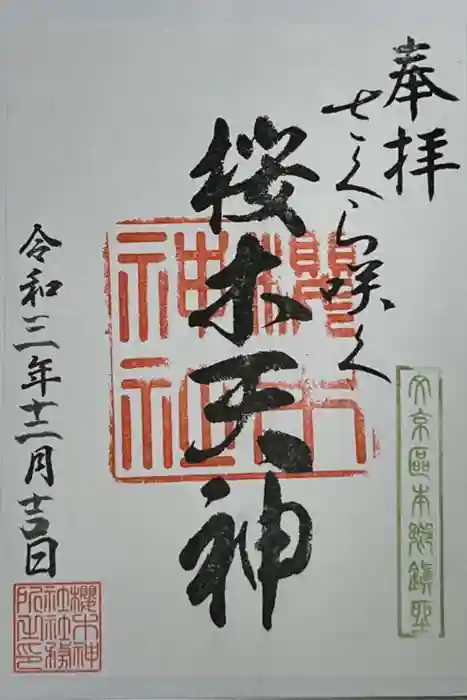 奉拝
さくら咲く
文京區本郷鎮座
桜木天神
櫻木
神社
令和三年十二月吉日
櫻木神
社社務
所之印